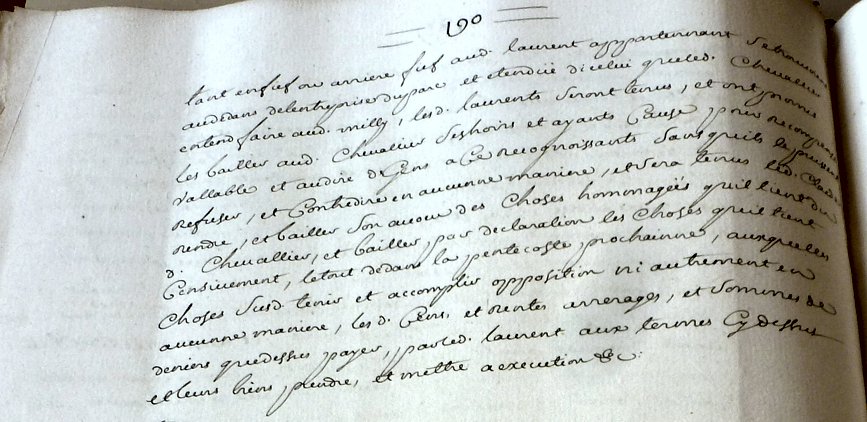 190
tant en fief ou arriere fief aud. laurent appartennant se trouveront
au dedans de lentreprise du parc et etendüe dicelui que led. Chevalier
entend faire aud. milly, lesd. laurents seront tenus, et ont promis
les bailler aud. Chevalier ses hoirs et ayants Cause pour recompense
vallable et au dire de Gens a Ce recognoissants sans quils le puissent
refuser, et Contredire en aucunne maniere, et sera tenus led.
rendre, et bailler son aveu des Choses hommagées quil tient du
d. Chevallier, et bailler par declaration les Choses quil tient
Censivement, le tout dedans la pentecoste prochainne, auxquelles
Choses susd tenir et accomplir opposition ni autrement en
aucunne maniere, les d. Cens, et rentes arrerages, et sommes de
deniers que dessus payer, par led. laurent aux termes Cy dessus
et leurs biens prendre, et mettre a execution &c.